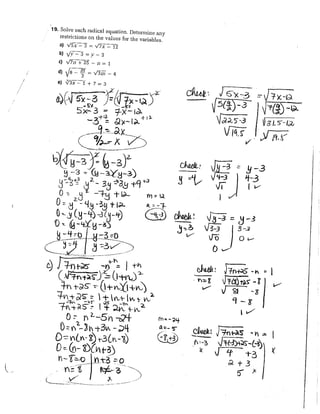 19. Solve each radical equation. Determine any
restrictions on the values for the variables.
a) √5x - 3 = √7x - 12
b) √y - 3 = y - 3
c) √7n + 25 - n = 1
e) √3x - 2 + 7 = 3
a) (√5x-3)² = (√7x-12)²
5x-3 = 7x-12
-5x -5x
-3 = 2x-12
+12 +12
9 = 2x
9/2 = x ✓
check: √5x-3 = √7x-12
√5(9/2)-3 √7(9/2)-12
√22.5-3 √31.5-12
√19.5 √19.5
b) (√y-3)² = (y-3)²
y-3 = (y-3)(y-3)
y-3 = y² - 3y - 3y + 9
0 = y² - 7y + 12
0 = y² - 4y - 3y + 12
0 = y(y-4) -3(y-4)
0 = (y-4)(y-3)
y-4=0 y-3=0
y=4 y=3 ✓
m=12
a=-7
(-4,-3)
check: √y-3 = y-3
y=4 √4-3 4-3
√1 1
1 ✓
check: √y-3 = y-3
y=3 √3-3 3-3
√0 0 ✓
0 ✓
c) √7n+25 -n = 1 +n
(√7n+25)² = (1+n)²
7n+25 = (1+n)(1+n)
7n+25 = 1+1n+1n+n²
7n+25 = 1+2n+n²
0 = n² - 5n - 24
0 = n² - 8n + 3n - 24
0 = n(n-8) + 3(n-8)
0 = (n-8)(n+3)
n-8=0 n+3=0
n=8 n=-3
✓ x
m=-24
a=-5
(-8,+3)
check: √7n+25 -n = 1
n=8 √7(8)+25 -8 1
√81 -8
9 - 8
1 ✓
check: √7n+25 -n = 1
n=-3 √7(-3)+25-(-3) 1
x √4 +3
2 + 3
5 x